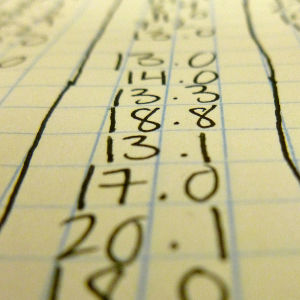 13.0
14.0
13.3
18.8
13.1
17.0
20.1
18.0